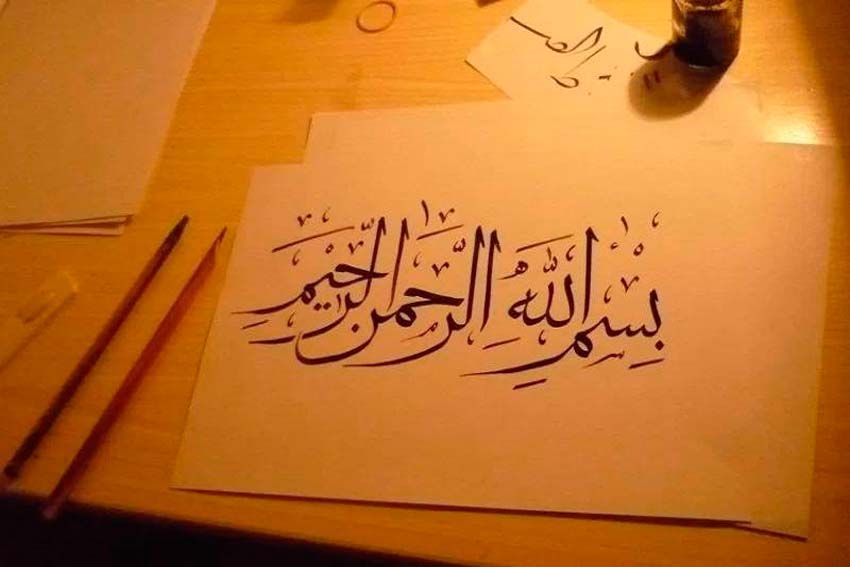 بِسْمِ اللهِ الرَّحمنِ الرَّحِيْمِ